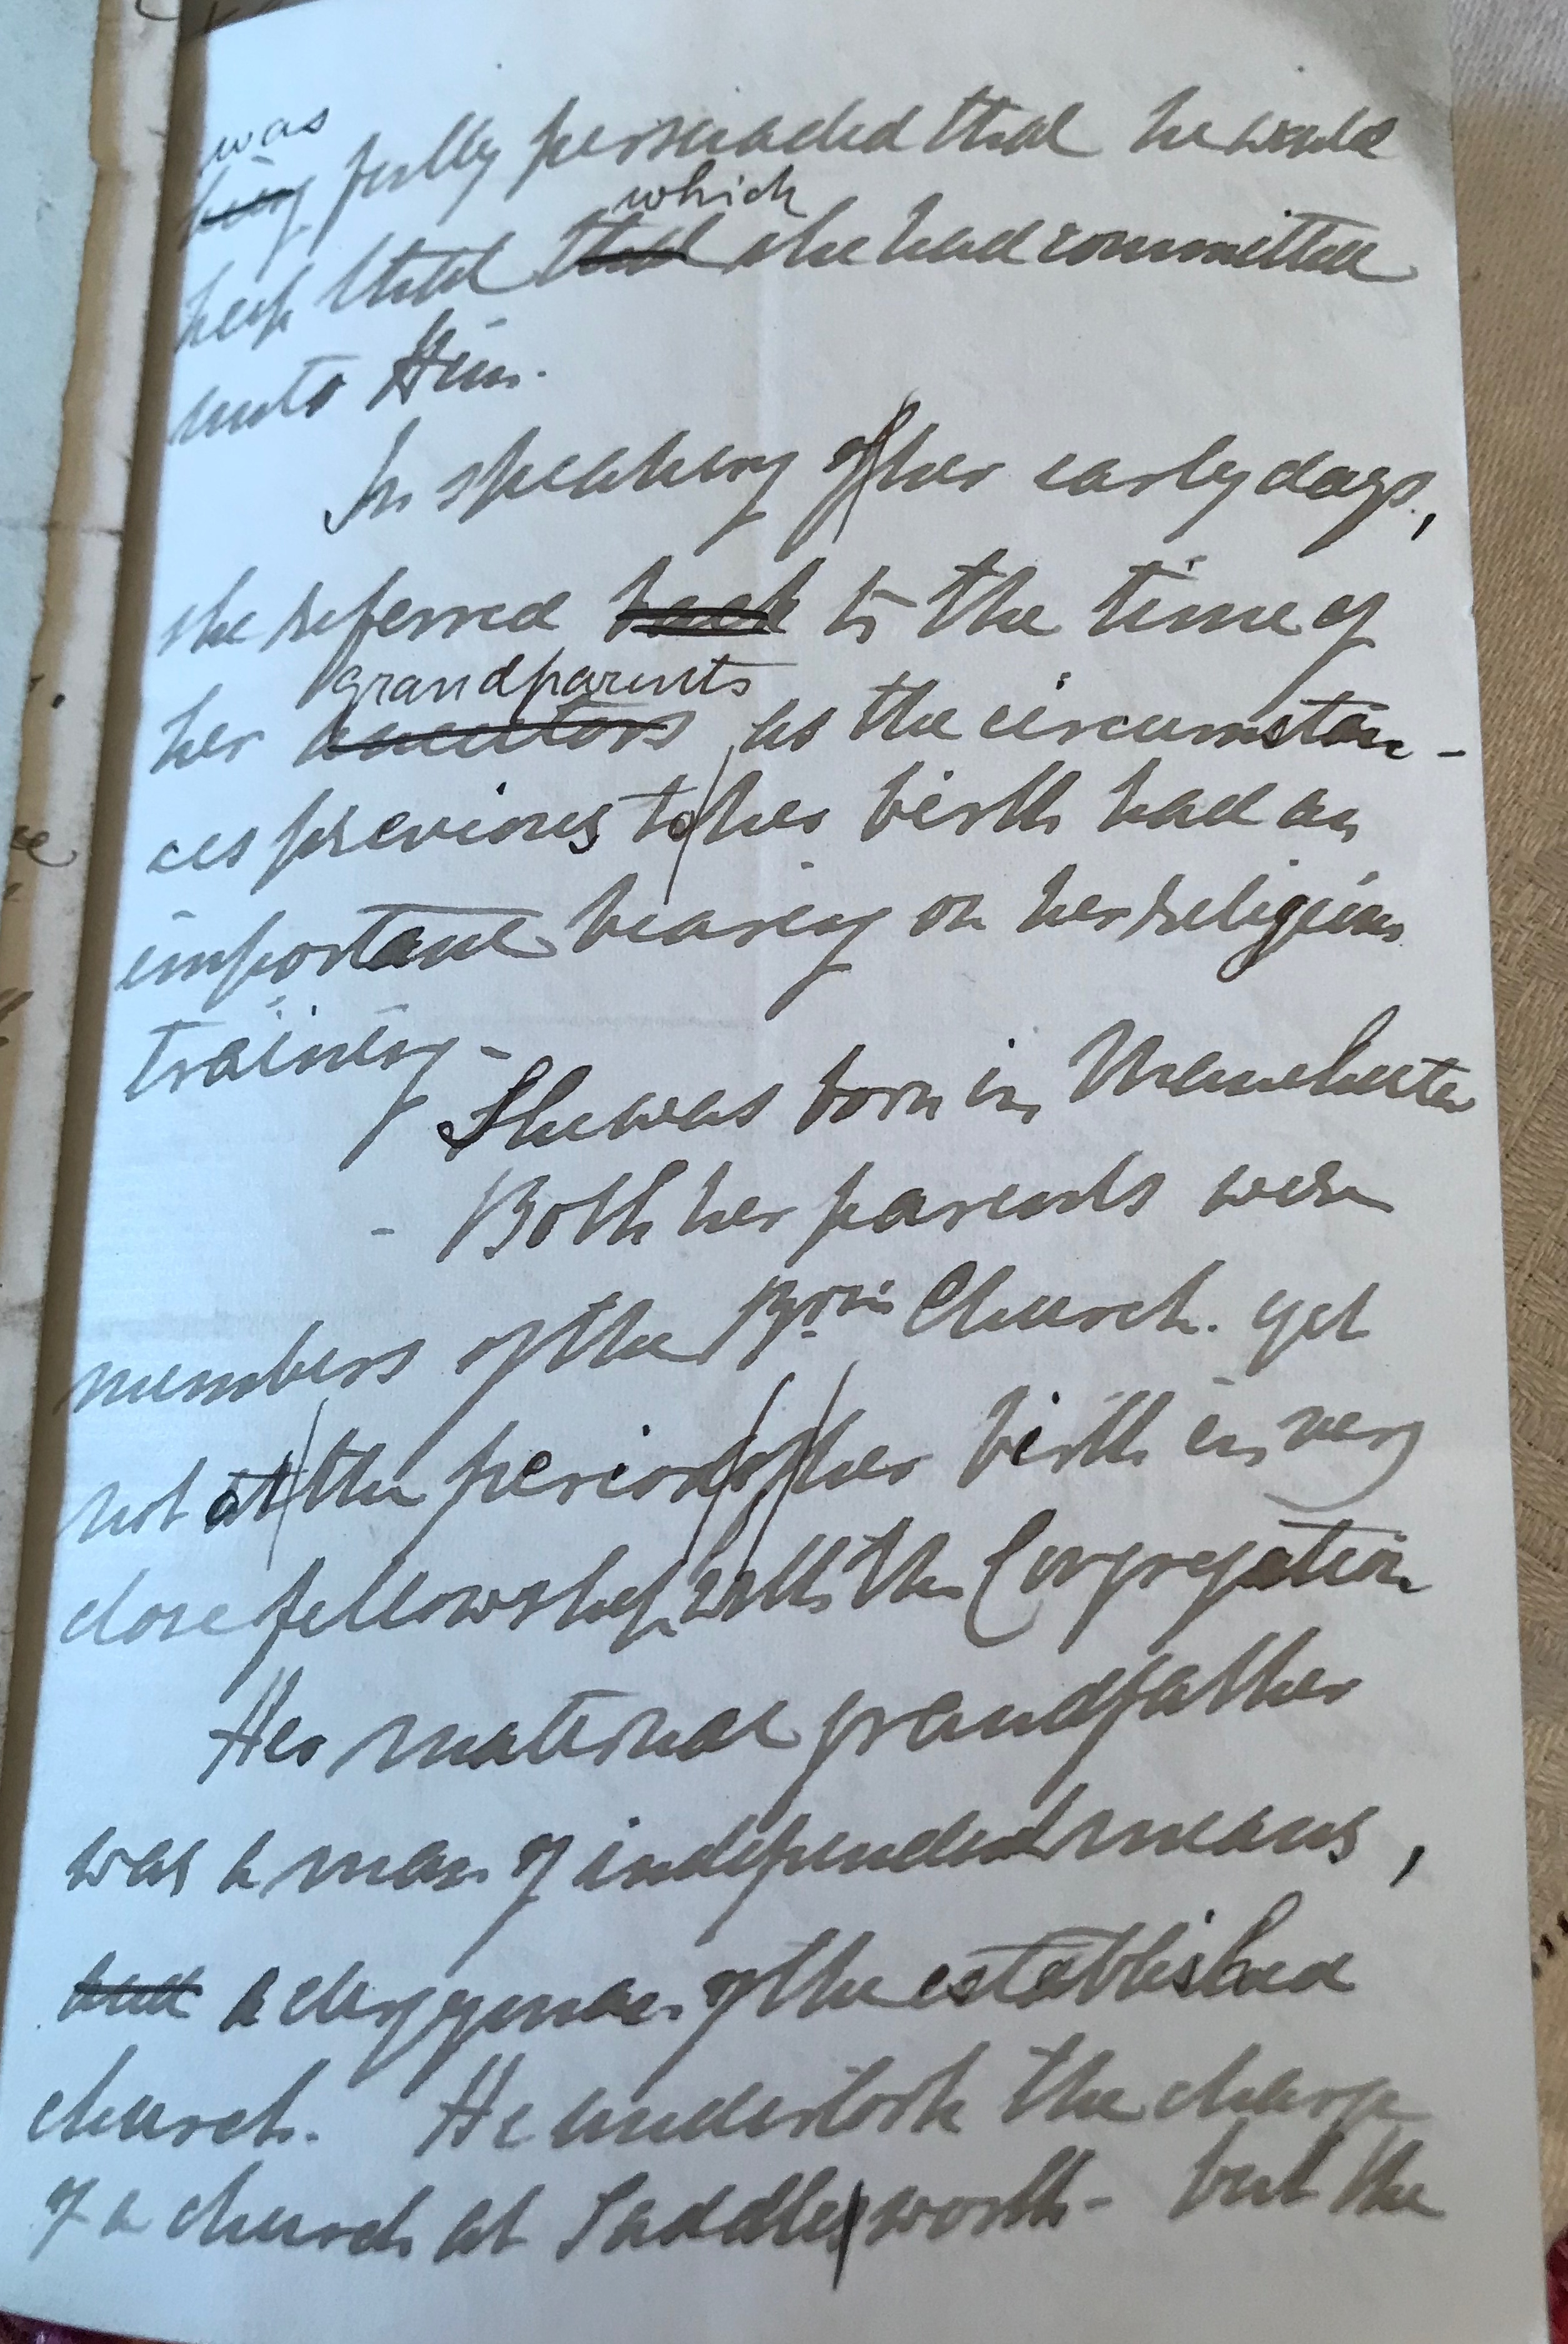 was
being fully persuaded that he would
which
keep that that she had committed
unto Him.
In speaking of her early days,
she referred back to the time of
grandparents
her ancestors, as the circumstan-
ces previous to her birth had an
important bearing on her religious
training-
She was born in Manchester
- Both her parents were
members of the Brn's Church. yet
not at the period of her birth in very
close fellowship with the Congregation
Her maternal grandfather
was a man of independent means,
and a clergyman of the established
church. He undertook the charge
of a church at Saddleworth- but the